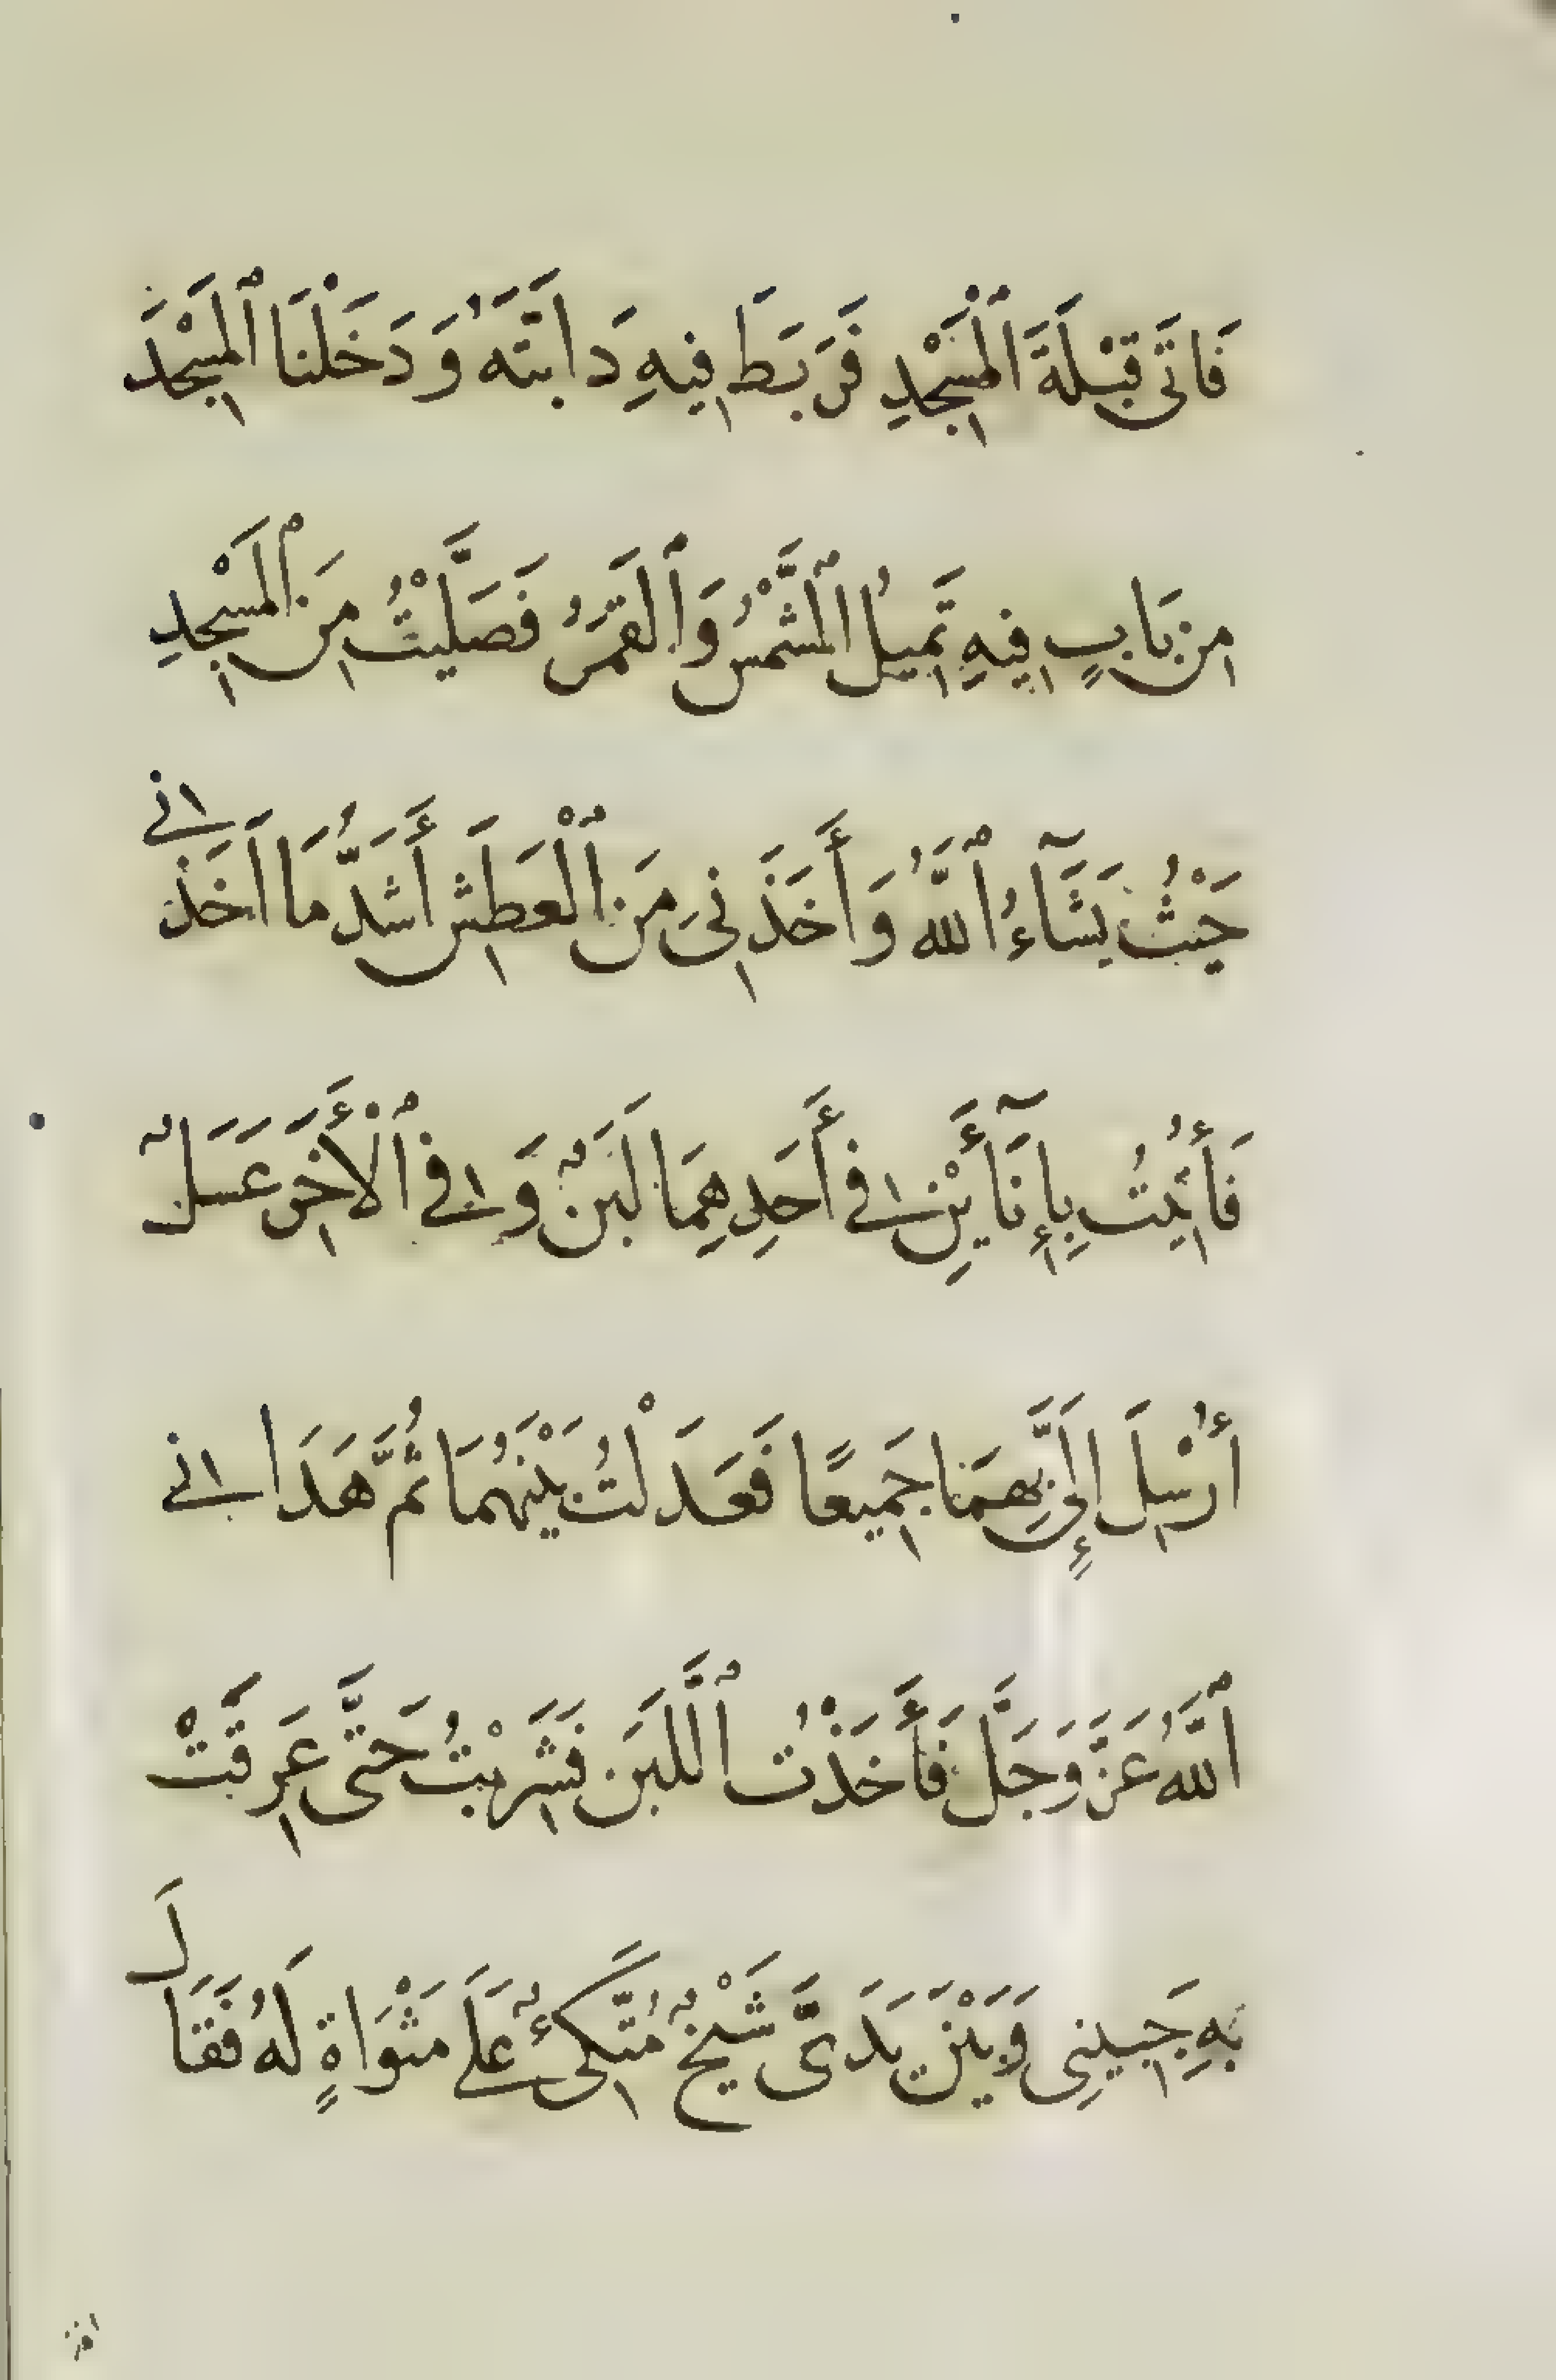 فَاَتَى قِبْلَةَ ٱلْمَسْجِدِ فَرَبَطَ فِيهِ دَابَّتَهُ وَدَخَلْنَا ٱلْمَسْجِدَ
مِن بَابٍ فِيهِ تَمِيلُ ٱلشَّمْسُ وَٱلْقَمَرُ فَصَلَّيْتُ مِنَ ٱلْمَسْجِدِ
حَيْثُ يَشَآءُ ٱللَّهُ وَأَخَذَنِى مِنَ ٱلْعَطَشِ أَشَدُّ مَا اَخَذَنِي
فَأُتِيتُ بِإِنَآءَيْنِ فِي أَحَدِهِمَا لَبَنٌ وَفِي ٱلْأَخَرِ عَسَلٌ
أُرْسِلَ إِلَيَّ بِهِمَا جَمِيعًا فَعَدَلْتُ بَيْنَهُمَا ثُمَّ هَدَانِي
ٱللَّهُ عَزَّ وَجَلَّ فَأَخَذْتُ ٱللَّبَنَ فَشَرِبْتُ حَتَّى عَرِقَتْ
بِهِ جَبِينِى وَبَيْنَ يَدَىَّ شَيْخٌ مُتَّكِئٌ عَلَى مَثْوَاةٍ لَهُ فَقَالَ